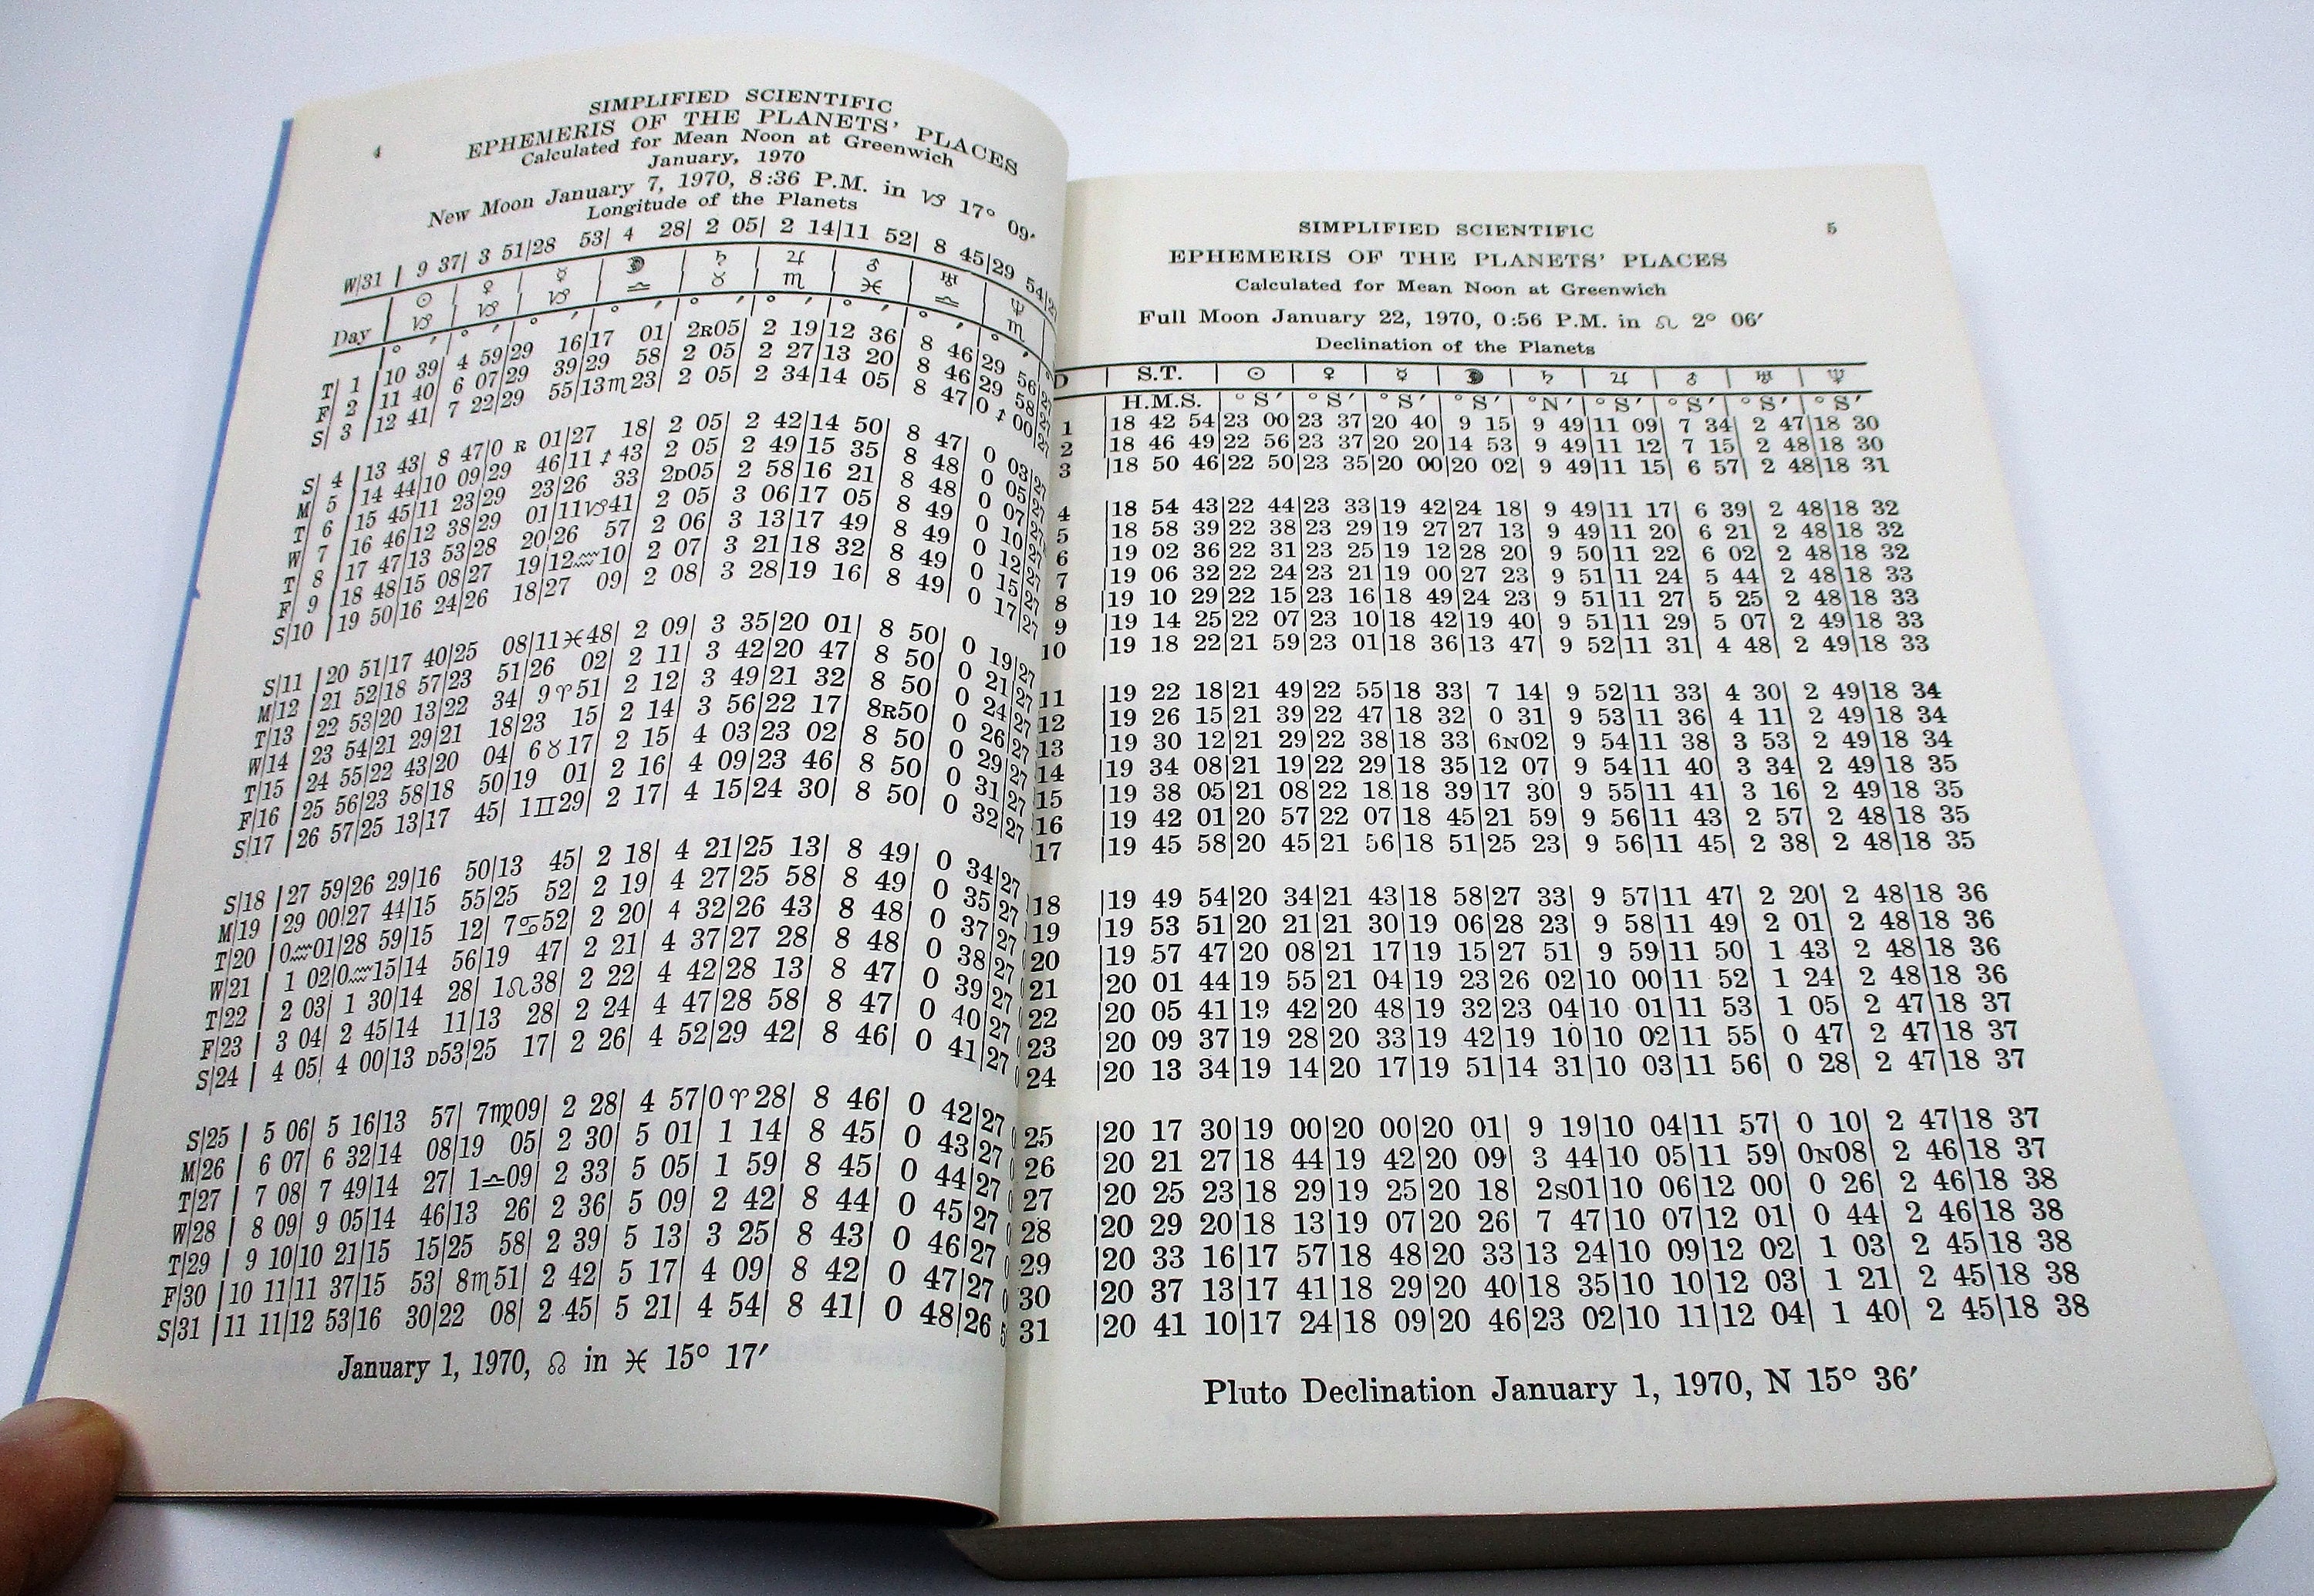 4
SIMPLIFIED SCIENTIFIC
EPHEMERIS OF THE PLANETS' PLACES
Calculated for Mean Noon at Greenwich
January, 1970
New Moon January 7, 1970, 8:36 P.M. in ♑ 17° 09′
Longitude of the Planets
W|31 | 9 37| 3 51|28 53| 4 28| 2 05| 2 14|11 52| 8 45|29 54|
Day | ☉ ♑ | ♀ ♑ | ☿ ♑ | ☽ ♎ | ♄ ♉ | ♃ ♏ | ♂ ♓ | ♅ ♎ | ♆ ♏
° ′ | ° ′ | ° ′ | ° ′ | ° ′ | ° ′ | ° ′ | ° ′ | ° ′
T| 1 |10 39| 4 59|29 16|17 01| 2R05| 2 19|12 36| 8 46|29 56|
F| 2 |11 40| 6 07|29 39|29 58| 2 05| 2 27|13 20| 8 46|29 58|
S| 3 |12 41| 7 22|29 55|13♏23| 2 05| 2 34|14 05| 8 47|0 ♐ 00|27
S| 4 |13 43| 8 47|0 R 01|27 18| 2 05| 2 42|14 50| 8 47| 0 03|27
M| 5 |14 44|10 09|29 46|11♐43| 2 05| 2 49|15 35| 8 48| 0 05|27
T| 6 |15 45|11 23|29 23|26 33| 2D05| 2 58|16 21| 8 48| 0 07|27
W| 7 |16 46|12 38|29 01|11♑41| 2 05| 3 06|17 05| 8 49| 0 10|27
T| 8 |17 47|13 53|28 20|26 57| 2 06| 3 13|17 49| 8 49| 0 12|27
F| 9 |18 48|15 08|27 19|12♒10| 2 07| 3 21|18 32| 8 49| 0 15|27
S|10 |19 50|16 24|26 18|27 09| 2 08| 3 28|19 16| 8 49| 0 17|27
S|11 |20 51|17 40|25 08|11♓48| 2 09| 3 35|20 01| 8 50| 0 19|27
M|12 |21 52|18 57|23 51|26 02| 2 11| 3 42|20 47| 8 50| 0 21|27
T|13 |22 53|20 13|22 34| 9♈51| 2 12| 3 49|21 32| 8 50| 0 24|27
W|14 |23 54|21 29|21 18|23 15| 2 14| 3 56|22 17| 8R50| 0 26|27
T|15 |24 55|22 43|20 04| 6♉17| 2 15| 4 03|23 02| 8 50| 0 29|27
F|16 |25 56|23 58|18 50|19 01| 2 16| 4 09|23 46| 8 50| 0 31|27
S|17 |26 57|25 13|17 45| 1♊29| 2 17| 4 15|24 30| 8 50| 0 32|27
S|18 |27 59|26 29|16 50|13 45| 2 18| 4 21|25 13| 8 49| 0 34|27
M|19 |29 00|27 44|15 55|25 52| 2 19| 4 27|25 58| 8 49| 0 35|27
T|20 |0♒01|28 59|15 12| 7♋52| 2 20| 4 32|26 43| 8 48| 0 37|27
W|21 | 1 02|0♒15|14 56|19 47| 2 21| 4 37|27 28| 8 48| 0 38|27
T|22 | 2 03| 1 30|14 28| 1♌38| 2 22| 4 42|28 13| 8 47| 0 39|27
F|23 | 3 04| 2 45|14 11|13 28| 2 24| 4 47|28 58| 8 47| 0 40|27
S|24 | 4 05| 4 00|13 D53|25 17| 2 26| 4 52|29 42| 8 46| 0 41|27
S|25 | 5 06| 5 16|13 57| 7♍09| 2 28| 4 57|0♈28| 8 46| 0 42|27
M|26 | 6 07| 6 32|14 08|19 05| 2 30| 5 01| 1 14| 8 45| 0 43|27
T|27 | 7 08| 7 49|14 27| 1♎09| 2 33| 5 05| 1 59| 8 45| 0 44|27
W|28 | 8 09| 9 05|14 46|13 26| 2 36| 5 09| 2 42| 8 44| 0 45|27
T|29 | 9 10|10 21|15 15|25 58| 2 39| 5 13| 3 25| 8 43| 0 46|27
F|30 |10 11|11 37|15 53| 8♏51| 2 42| 5 17| 4 09| 8 42| 0 47|27
S|31 |11 11|12 53|16 30|22 08| 2 45| 5 21| 4 54| 8 41| 0 48|26
January 1, 1970, ☊ in ♓ 15° 17′
SIMPLIFIED SCIENTIFIC
5
EPHEMERIS OF THE PLANETS' PLACES
Calculated for Mean Noon at Greenwich
Full Moon January 22, 1970, 0:56 P.M. in ♌ 2° 06′
Declination of the Planets
D | S.T. | ☉ | ♀ | ☿ | ☽ | ♄ | ♃ | ♂ | ♅ | ♆
H.M.S. | ° S ′ | ° S ′ | ° S ′ | ° S ′ | ° N ′ | ° S ′ | ° S ′ | ° S ′ | ° S ′
1 |18 42 54|23 00|23 37|20 40| 9 15| 9 49|11 09| 7 34| 2 47|18 30
2 |18 46 49|22 56|23 37|20 20|14 53| 9 49|11 12| 7 15| 2 48|18 30
3 |18 50 46|22 50|23 35|20 00|20 02| 9 49|11 15| 6 57| 2 48|18 31
4 |18 54 43|22 44|23 33|19 42|24 18| 9 49|11 17| 6 39| 2 48|18 32
5 |18 58 39|22 38|23 29|19 27|27 13| 9 49|11 20| 6 21| 2 48|18 32
6 |19 02 36|22 31|23 25|19 12|28 20| 9 50|11 22| 6 02| 2 48|18 32
7 |19 06 32|22 24|23 21|19 00|27 23| 9 51|11 24| 5 44| 2 48|18 33
8 |19 10 29|22 15|23 16|18 49|24 23| 9 51|11 27| 5 25| 2 48|18 33
9 |19 14 25|22 07|23 10|18 42|19 40| 9 51|11 29| 5 07| 2 49|18 33
10 |19 18 22|21 59|23 01|18 36|13 47| 9 52|11 31| 4 48| 2 49|18 33
11 |19 22 18|21 49|22 55|18 33| 7 14| 9 52|11 33| 4 30| 2 49|18 34
12 |19 26 15|21 39|22 47|18 32| 0 31| 9 53|11 36| 4 11| 2 49|18 34
13 |19 30 12|21 29|22 38|18 33| 6N02| 9 54|11 38| 3 53| 2 49|18 34
14 |19 34 08|21 19|22 29|18 35|12 07| 9 54|11 40| 3 34| 2 49|18 35
15 |19 38 05|21 08|22 18|18 39|17 30| 9 55|11 41| 3 16| 2 49|18 35
16 |19 42 01|20 57|22 07|18 45|21 59| 9 56|11 43| 2 57| 2 48|18 35
17 |19 45 58|20 45|21 56|18 51|25 23| 9 56|11 45| 2 38| 2 48|18 35
18 |19 49 54|20 34|21 43|18 58|27 33| 9 57|11 47| 2 20| 2 48|18 36
19 |19 53 51|20 21|21 30|19 06|28 23| 9 58|11 49| 2 01| 2 48|18 36
20 |19 57 47|20 08|21 17|19 15|27 51| 9 59|11 50| 1 43| 2 48|18 36
21 |20 01 44|19 55|21 04|19 23|26 02|10 00|11 52| 1 24| 2 48|18 36
22 |20 05 41|19 42|20 48|19 32|23 04|10 01|11 53| 1 05| 2 47|18 37
23 |20 09 37|19 28|20 33|19 42|19 10|10 02|11 55| 0 47| 2 47|18 37
24 |20 13 34|19 14|20 17|19 51|14 31|10 03|11 56| 0 28| 2 47|18 37
25 |20 17 30|19 00|20 00|20 01| 9 19|10 04|11 57| 0 10| 2 47|18 37
26 |20 21 27|18 44|19 42|20 09| 3 44|10 05|11 59| 0N08| 2 46|18 37
27 |20 25 23|18 29|19 25|20 18| 2S01|10 06|12 00| 0 26| 2 46|18 38
28 |20 29 20|18 13|19 07|20 26| 7 47|10 07|12 01| 0 44| 2 46|18 38
29 |20 33 16|17 57|18 48|20 33|13 24|10 09|12 02| 1 03| 2 45|18 38
30 |20 37 13|17 41|18 29|20 40|18 35|10 10|12 03| 1 21| 2 45|18 38
31 |20 41 10|17 24|18 09|20 46|23 02|10 11|12 04| 1 40| 2 45|18 38
Pluto Declination January 1, 1970, N 15° 36′